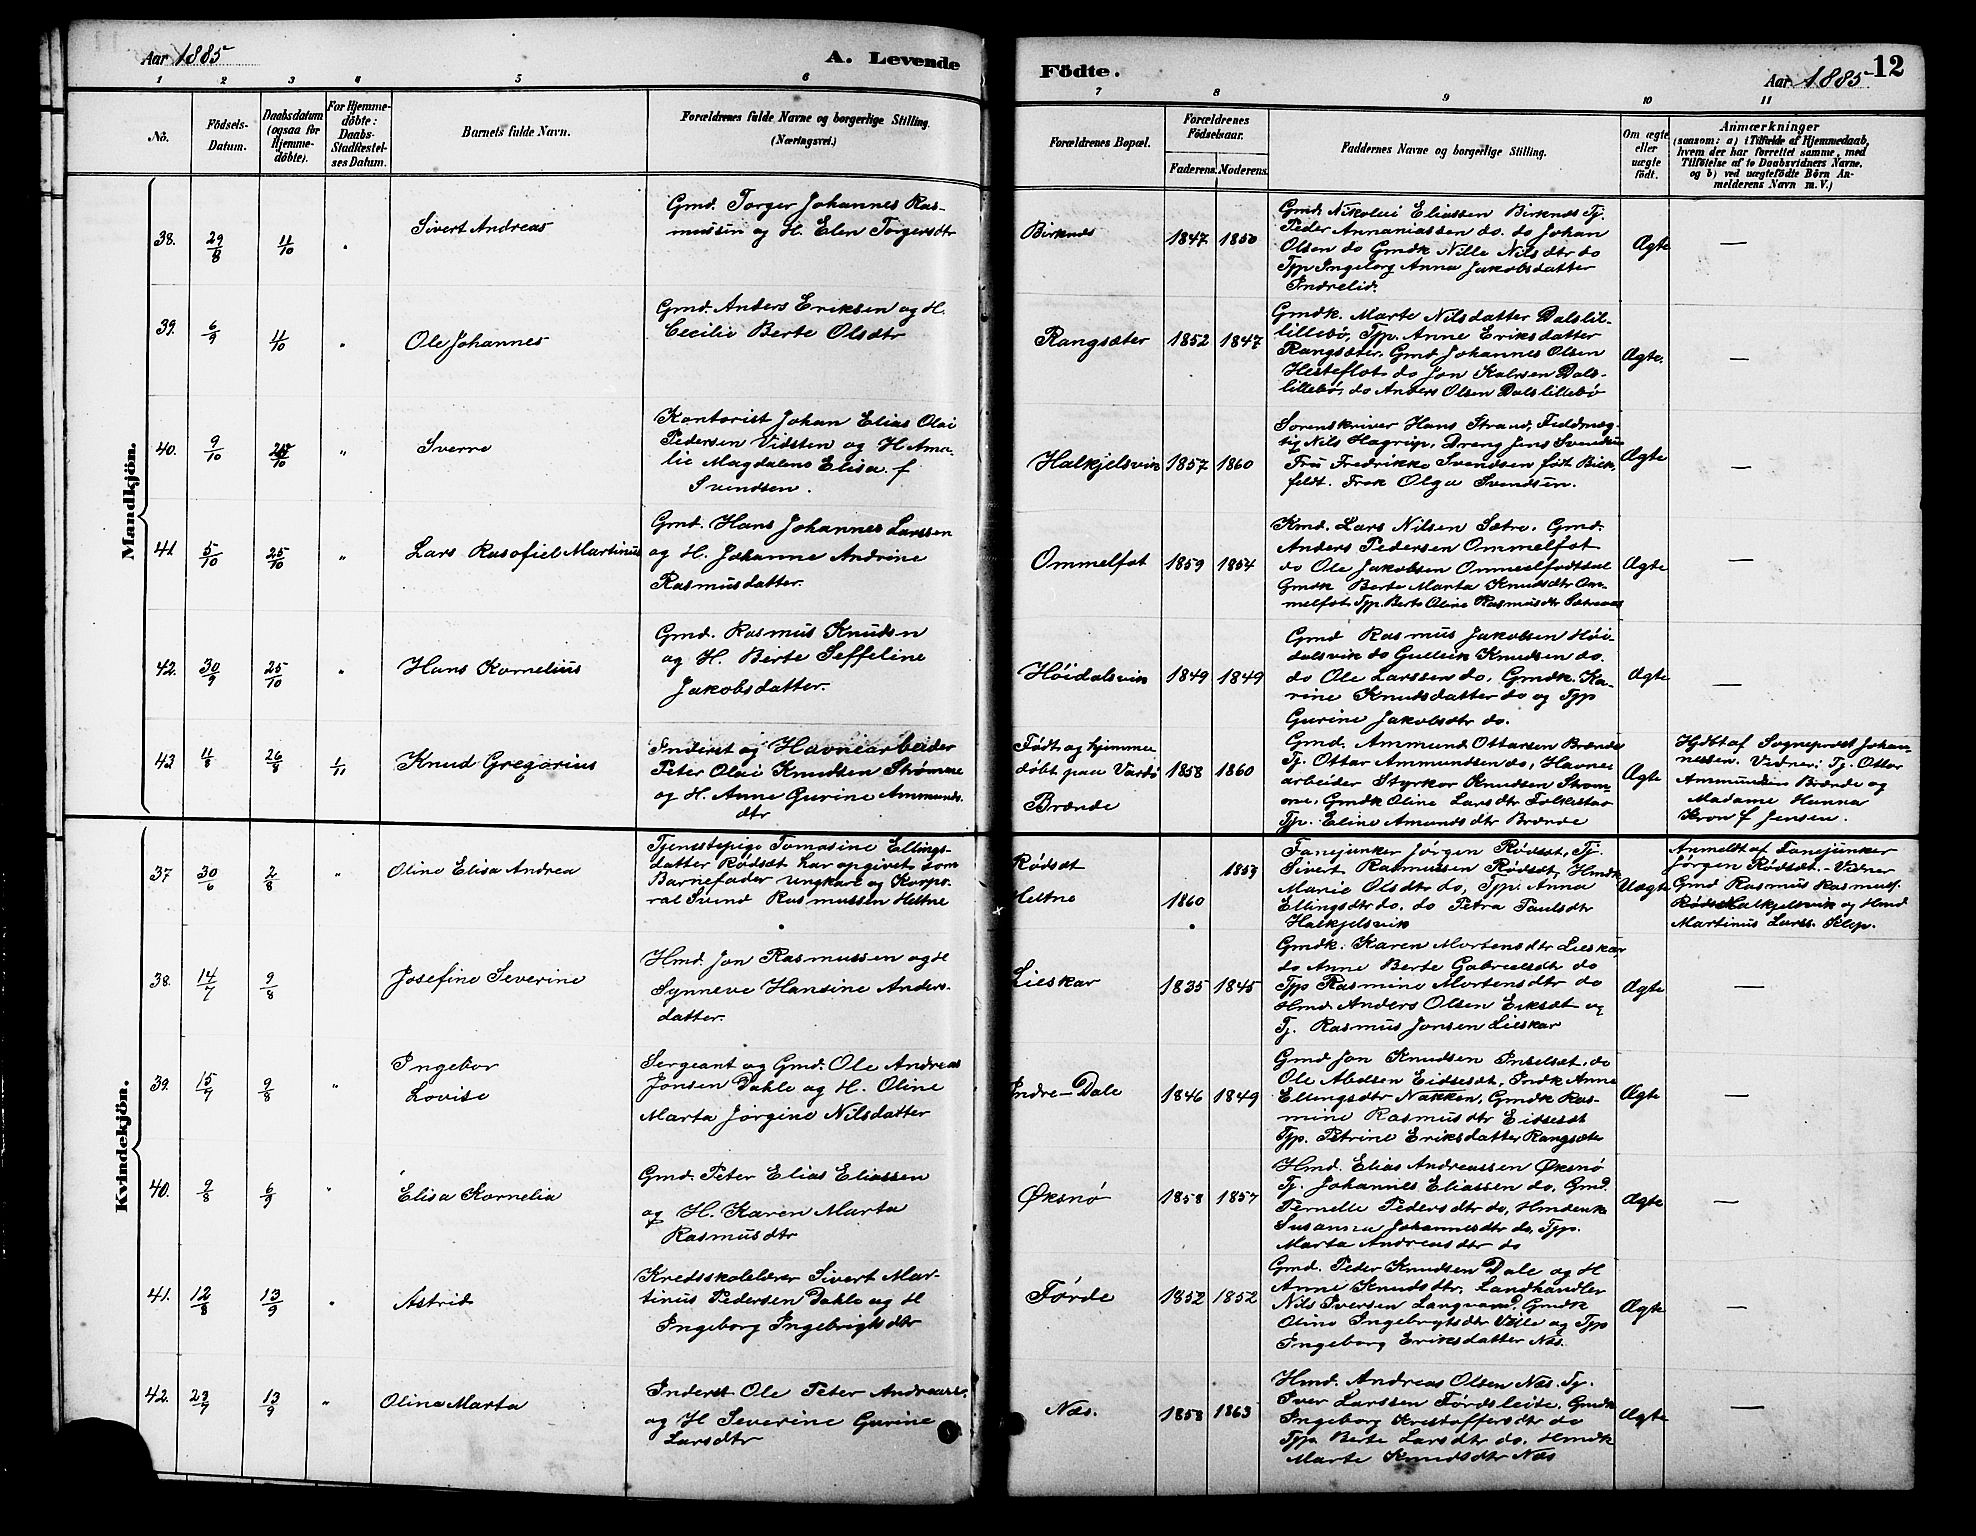 Aar 1885
A. Levende
Födte.
Aar 1885
12
1 2 3 4 5 6 7 8 9 10 11
No.
Födsels-
Datum.
Daabsdatum
(ogsaa for
Hjemme-
döbte).
For Hjemme-
döbte:
Daabs-
Stadfestel-
ses Datum.
Barnets fulde Navn.
Forældrenes fulde Navne og borgerlige Stilling.
(Næringsvei.)
Forældrenes Bopæl.
Forældrenes
Födselsaar.
Faderens. Moderens.
Faddernes Navne og borgerlige Stilling.
Om ægte
eller
uægte
födt.
Anmærkninger
(saasom: a) i Tilfælde af Hjemmedaab,
hvem der har forrettet samme, med
Tilföielse af to Daabsvidners Navne.
og b) ved uægtefödte Börn An-
melderens Navn m. V.)
Mandkjön.
38. 29/8 11/10 "
Sivert Andreas
Gmd. Torger Johannes Ras-
mussen og H. Elen Torgersdtr
Birknes
1847 1850
Gmd. Nikolai Eliassen Birknes Tj.
Peder Annaniassen do. do Johan
Olsen do Gmdk Nille Nilsdtr do
Tpp Ingeborg Anna Jakobsdatter
Indrelid.
Ægte —
39. 6/9 4/10 "
Ole Johannes
Gmd. Anders Eriksen og H.
Cecilie Berte Olsdtr
Rangsæter
1852 1847
Gmdk. Marte Nilsdatter Dalslil-
lillebø, Tpp. Anne Eriksdatter
Rangsæter. Gmd Johannes Olsen
Hesteflot do Jon Karlsen Dals-
lillebø, do Anders Olsen Dalslillebø
Ægte. —
40. 9/10 /10 "
Sverre
Kontorist Johan Elias Olai
Pedersen Vidsten og H Ama-
lie Magdalene Elisa f
Svendsen.
Halkjelsvik
1857 1860
Sorenskriver Hans Strand, Fuldmæg-
tig Nils Hagrup, Dreng Jens Svendsen
Fru Fredrikke Svendsen født Birk-
feldt. Frøk Olga Svendsen.
Ægte —
41. 5/10 25/10 "
Lars Rasofiel Martinus
Gmd. Hans Johannes Larssen
og H. Johanne Andrine
Rasmusdatter.
Ommelfot
1859 1854
Kmd. Lars Nilsen Sætre. Gmd.
Anders Pedersen Ommelfot
do Ole Jakobsen Ommelfodtdal
Gmdk Berte Marta Knudsdtr Om-
melfot Tpp. Berte Oline Rasmusdtr Sætrenes
Ægte —
42. 30/9 25/10 "
Hans Kornelius
Gmd. Rasmus Knudsen
og H. Berte Seffeline
Jakobsdatter.
Høidalsvik
1849 1849
Gmd Rasmus Jakobsen Høi-
dalsvik do Gullik Knudsen do.
do Ole Larssen do, Gmdk. Ka-
rine Knudsdatter do og Tpp
Gurine Jakobsdtr do.
Ægte —
43 4/8 26/8 1/11
Knud Gregorius
Inderst og Havnearbeider
Peter Olai Knudsen Strømme
og H. Anne Gurine Ammunds-
dtr
Født og hjemme
døbt paa Vardø
Brænde
1858 1860
Gmd. Ammund Ottarsen Brænde
Tj. Ottar Ammundsen do, Havne
arbeider Styrkor Knudsen Strøm-
me, Gmdk Oline Larsdtr Folkestad
Tpp. Eline Amundsdtr Brænde
Ægte
Hjdbt af Sogneprest Johan-
nessen. Vidner: Tj. Ottar
Ammundsen Brænde og
Madame Hanna
Kron f Jensen.
Kvindekjön.
37 30/6 2/8 "
Oline Elisa Andrea
Tjenestepige Tomasine Ellings-
datter Rødsæt har opgivet som
Barnefader Ungkarl og Korpo-
ral Svend Rasmussen Heltne
Rødsæt
Heltne
1860 1859
Fanejunker Jørgen Rødsæt, Tj.
Sivert Rasmussen Rødsæt, Hmdk
Marie Olsdtr do, Tpp. Anna
Ellingsdtr do. do Petra Paulsdtr
Halkjelsvik
Uægte
Anmeldt af Fanejunker
Jørgen Rødsæt. – Vidner
Gmd Rasmus Rasmus.
Halkjelsvik og Hmd
Martinus Larss. Klep.
38. 14/7 9/8 "
Josefine Severine
Hmd. Jon Rasmussen og H
Synneve Hansine Anders-
datter.
Lieskar
1835 1845
Gmdk. Karen Mortensdtr Lieskar
do Anne Berte Gabrielsdtr do
Tpp Rasmine Mortensdtr do
Hmd. Anders Olsen Eiksæt og
Tj. Rasmus Jonsen Lieskar
Ægte —
39. 15/7 9/8 "
Ingebor
Lovise
Sergeant og Gmd. Ole Andreas
Jonsen Dahle og H. Oline
Marta Jørgine Nilsdatter
Indre-Dale
1846 1849
Gmd Jon Knudsen Inselset, do
Ole Abelsen Eidsesæt, Indk Anne
Ellingsdtr Nakken, Gmdk Ras-
mine Rasmusdtr Eidsesæt
Tpp. Petrine Eriksdatter Rangsæte
Ægte —
40. 9/8 6/9 "
Elisa Kornelia
Gmd. Peter Elias Eliassen
og H. Karen Marta
Rasmusdtr
Øksnø
1858 1857
Hmd. Elias Andreassen Øksnø
Tj. Johannes Eliassen do, Gmd.
Pernelle Pedersdtr do, Hmdenk
Susanna Johannesdtr do, Tpp.
Marta Andreasdtr do
Ægte —
41. 12/8 13/9 "
Astrid
Kredsskolelærer Sivert Mar-
tinus Pedersen Dahle og H
Ingeborg Ingebrigtsdtr
Førde
1852 1852
Gmd. Peder Knudsen Dale og H
Anne Knudsdtr, Landhandler
Nils Iversen Langvand, Gmdk
Oline Ingebrigtsdtr Velle og Tpp
Ingeborg Eriksdatter Næs.
Ægte —
42. 23/7 13/9 "
Olina Marta
Inderst Ole Peter Andreass.
og H Severine Gurine
Larsdtr
Næs.
1858 1863
Hmd. Andreas Olsen Næs. Tj.
Iver Larssen Førdsleite. Gmdk
Ingeborg Kristoffersdtr do
Tpp. Berte Larsdtr do. Hmdk
Marte Knudsdtr Næs
Ægte —